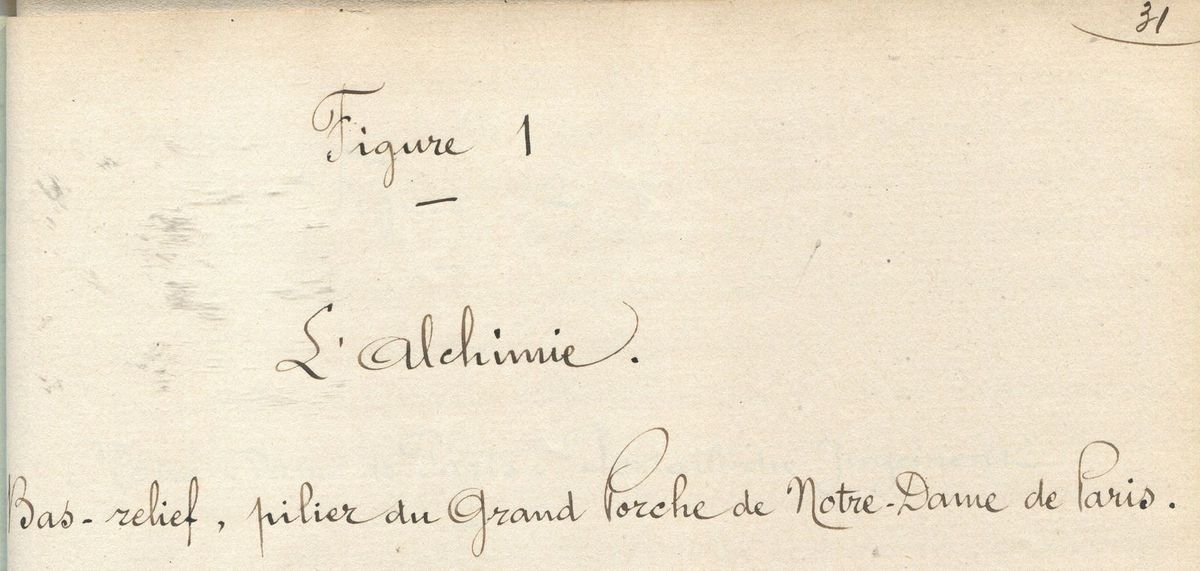 31
Figure 1
—
L'Alchimie.
Bas-relief, pilier du Grand Porche de Notre-Dame de Paris.